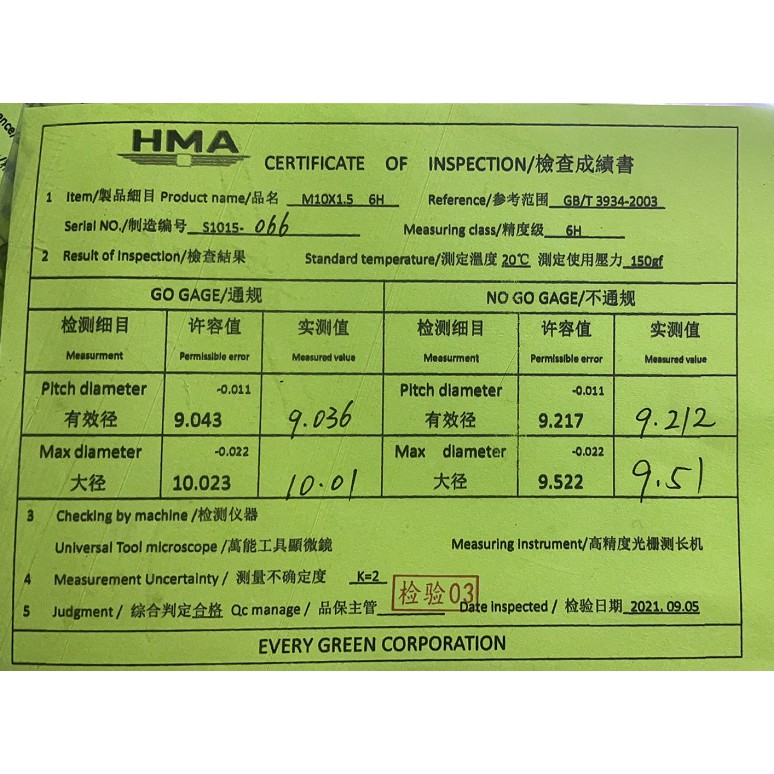 HMA
CERTIFICATE OF INSPECTION/檢查成績書
1 Item/製品細目 Product name/品名 M10X1.5 6H Reference/参考范围 GB/T 3934-2003
Serial NO./制造编号 S1015- 066 Measuring class/精度级 6H
2 Result of Inspection/檢查結果 Standard temperature/測定溫度 20℃ 測定使用壓力 150gf
GO GAGE/通规 NO GO GAGE/不通规
检测细目 许容值 实测值 检测细目 许容值 实测值
Measurment Permissible error Measured value Measurment Permissible error Measured value
Pitch diameter -0.011 Pitch diameter -0.011
有效径 9.043 9.036 有效径 9.217 9.212
Max diameter -0.022 Max diameter -0.022
大径 10.023 10.01 大径 9.522 9.51
3 Checking by machine /检测仪器
Universal Tool microscope /萬能工具顯微鏡 Measuring Instrument/高精度光栅测长机
4 Measurement Uncertainty / 测量不确定度 K=2
检验03
5 Judgment / 綜合判定合格 Qc manage / 品保主管 Date inspected / 检验日期 2021.09.05
EVERY GREEN CORPORATION